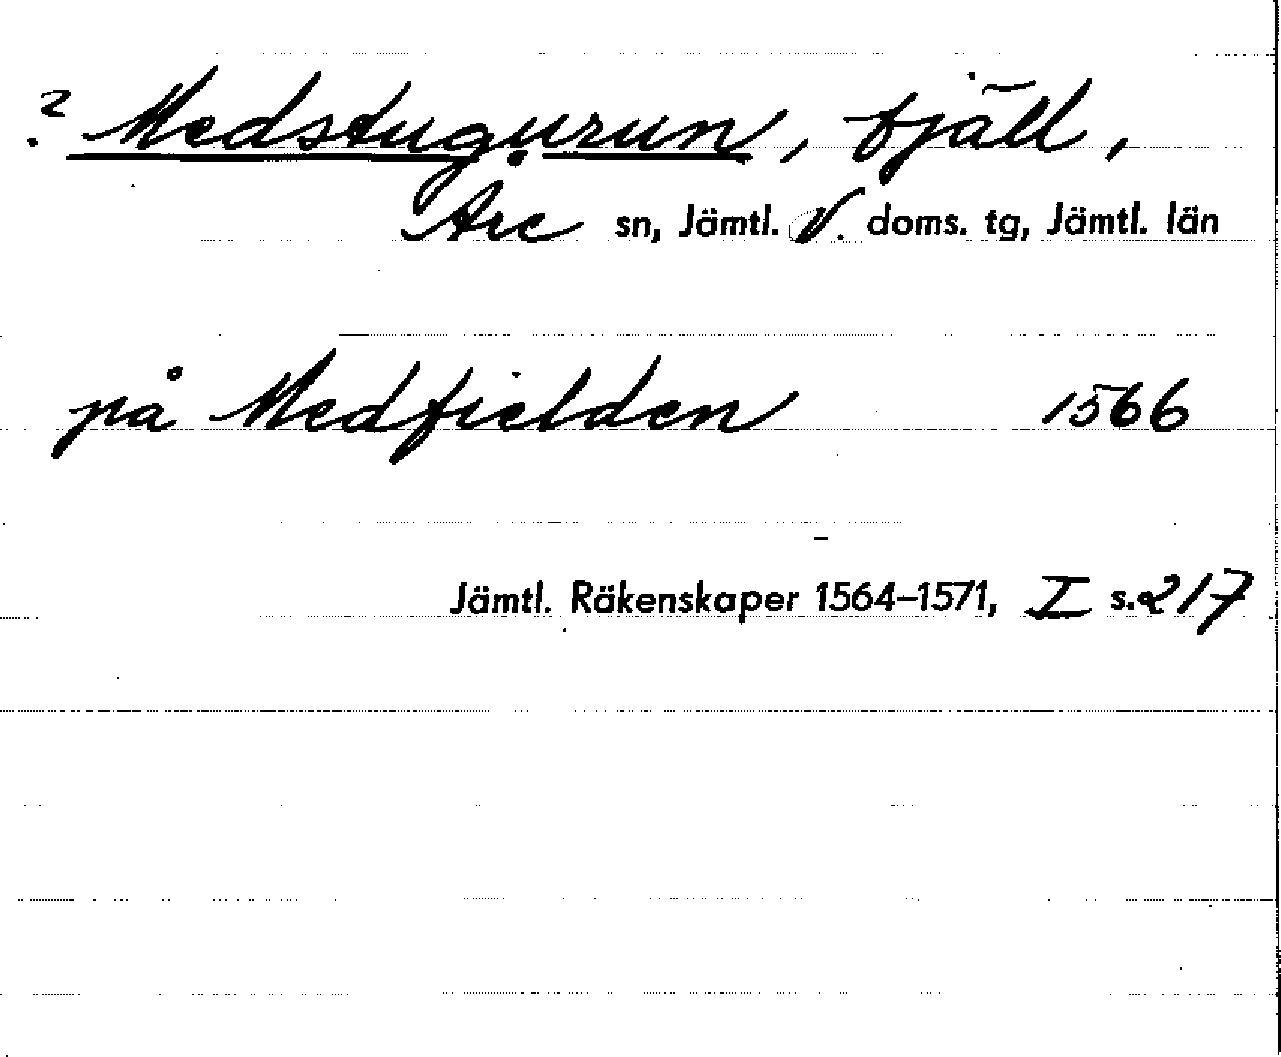 ? Medstugurun, fjäll,
Åre sn, Jämtl. V. doms. tg, Jämtl. län
på Medfielden 1566
Jämtl. Räkenskaper 1564–1571, I s. 217